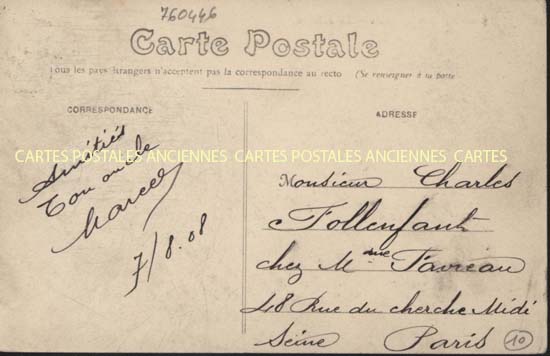 760446
Carte Postale
Tous les pays étrangers n'acceptent pas la correspondance au recto (Se renseigner à la poste
CORRESPONDANCE
ADRESSE
Amitiés
Ton oncle
Marcel
7/8.08
CARTES POSTALES ANCIENNES CARTES POSTALES ANCIENNES CARTES
Monsieur Charles
Follenfant
chez Mme Favreau
48 Rue du cherche Midi
Seine Paris
10